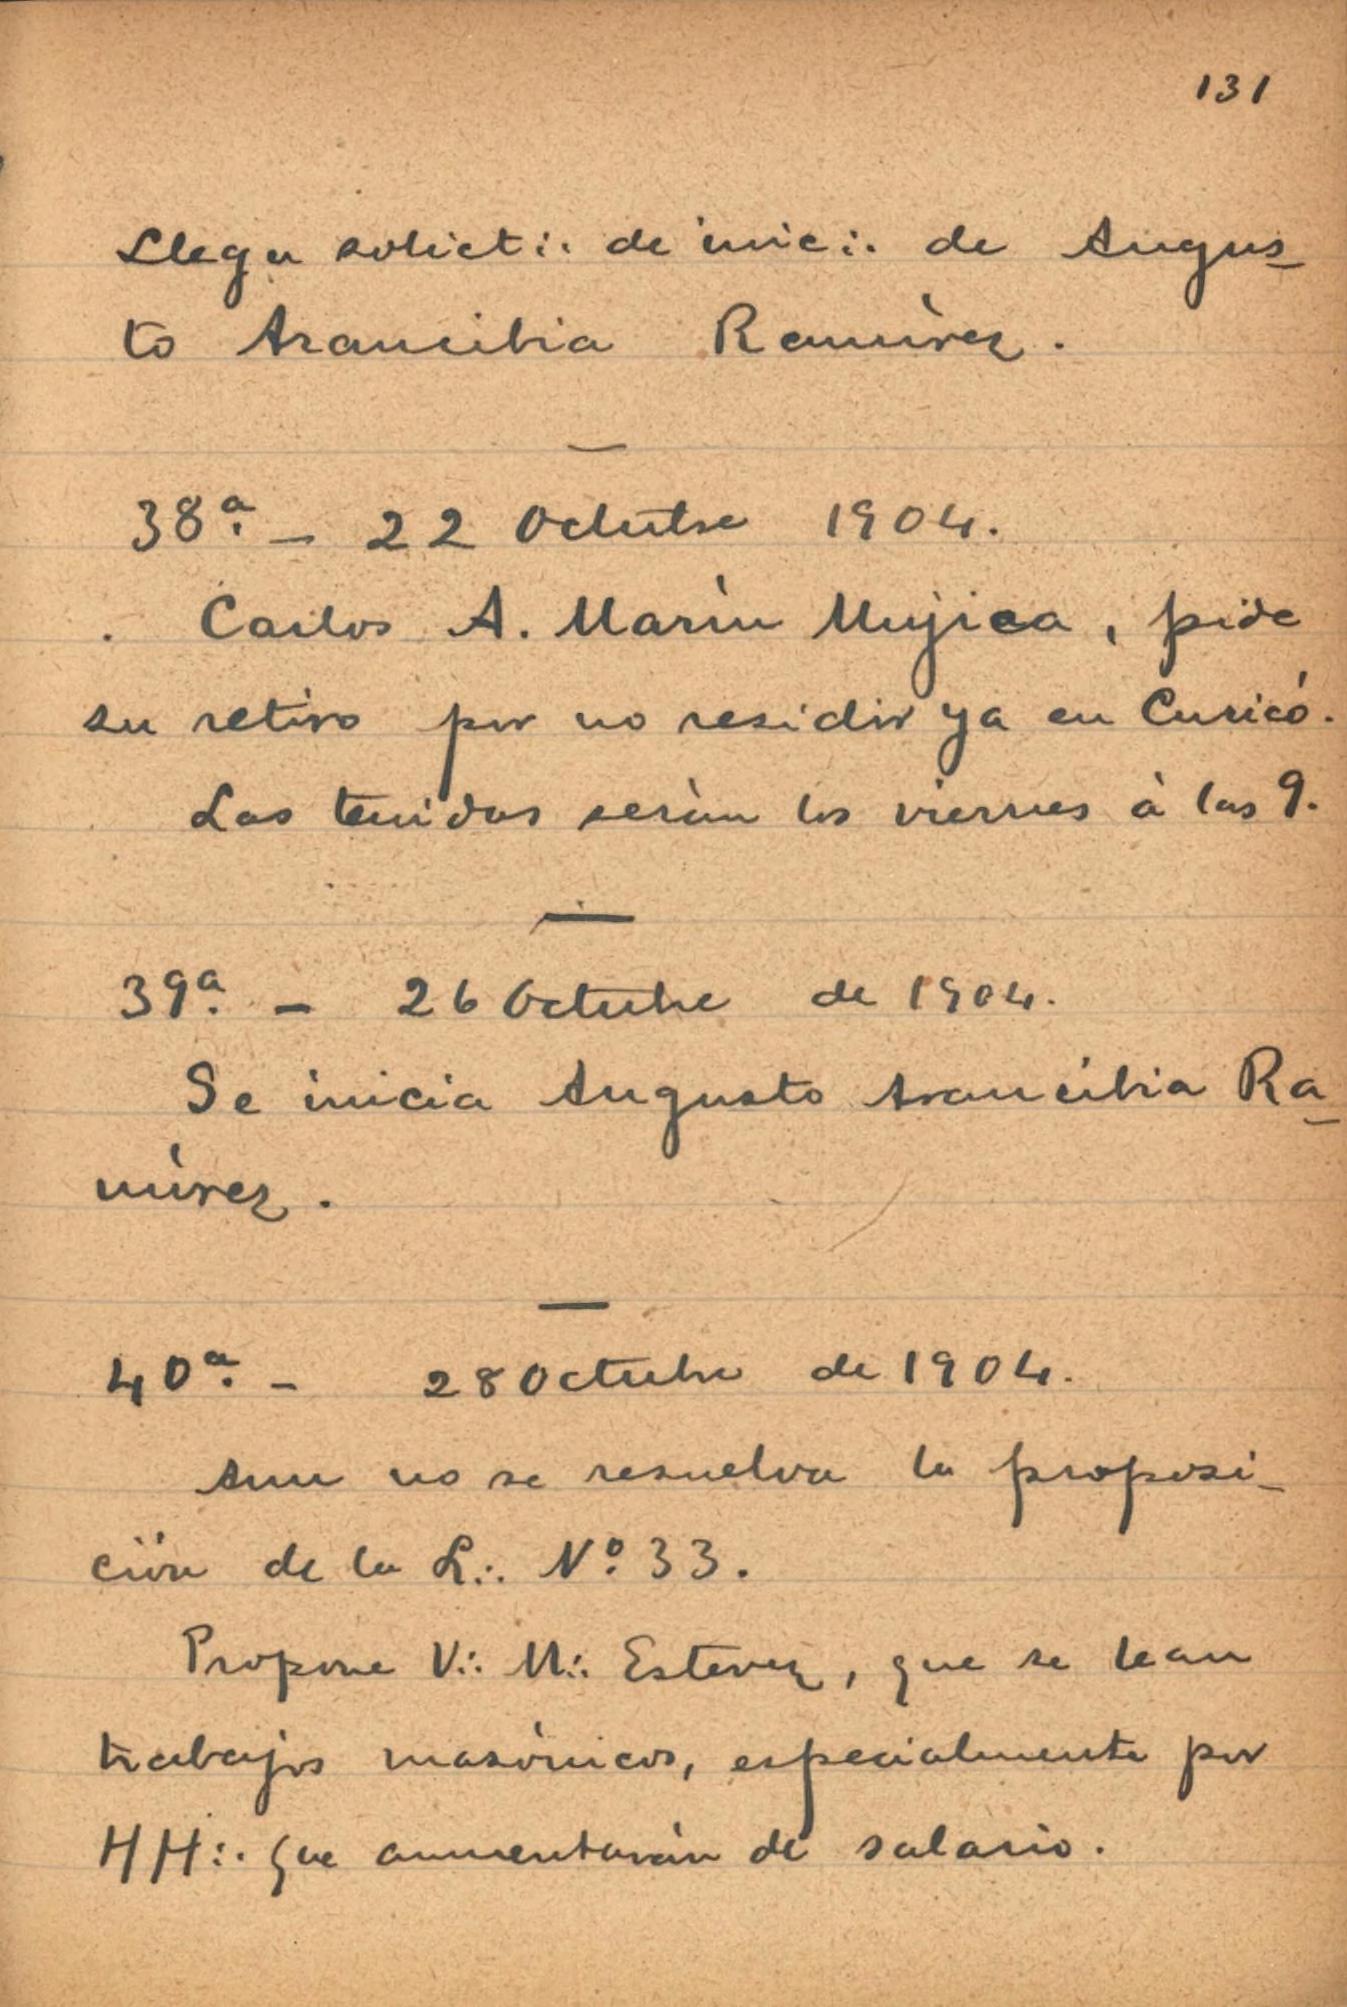 131
Llega solict∴ de inic∴ de Augus-
to Arancibia Ramírez.
38ª. - 22 Octubre 1904.
Carlos A. Marín Mujica, pide
su retiro por no residir ya en Curicó.
Las tenidas serán los viernes à las 9.
39ª. - 26 Octubre de 1904.
Se inicia Augusto Arancibia Ra-
mírez.
40ª. - 28 Octubre de 1904.
Aun no se resuelva la proposi-
ción de la L∴ Nº. 33.
Propone V∴ M∴ Estevez, que se lean
trabajos masónicos, especialmente por
HH∴ que aumentarán de salario.